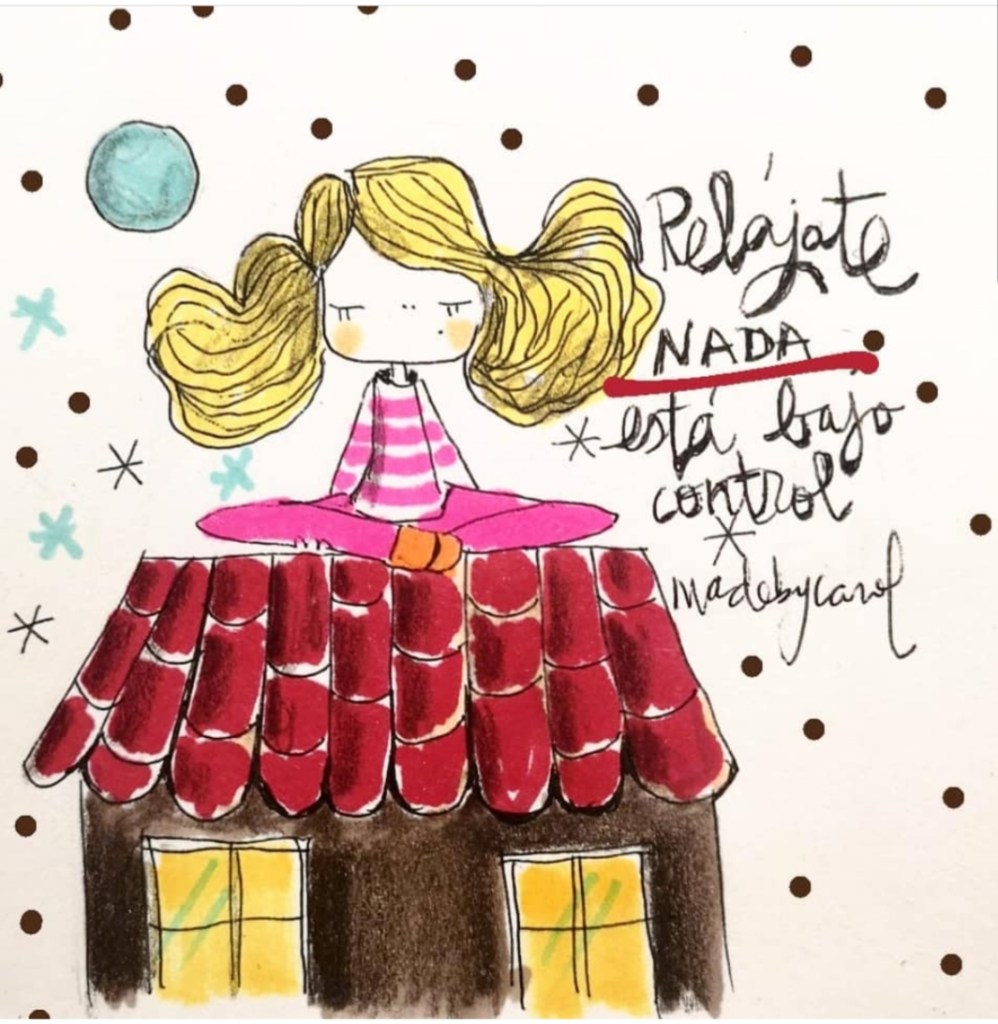 Relájate
NADA
está bajo
control
madebycarol